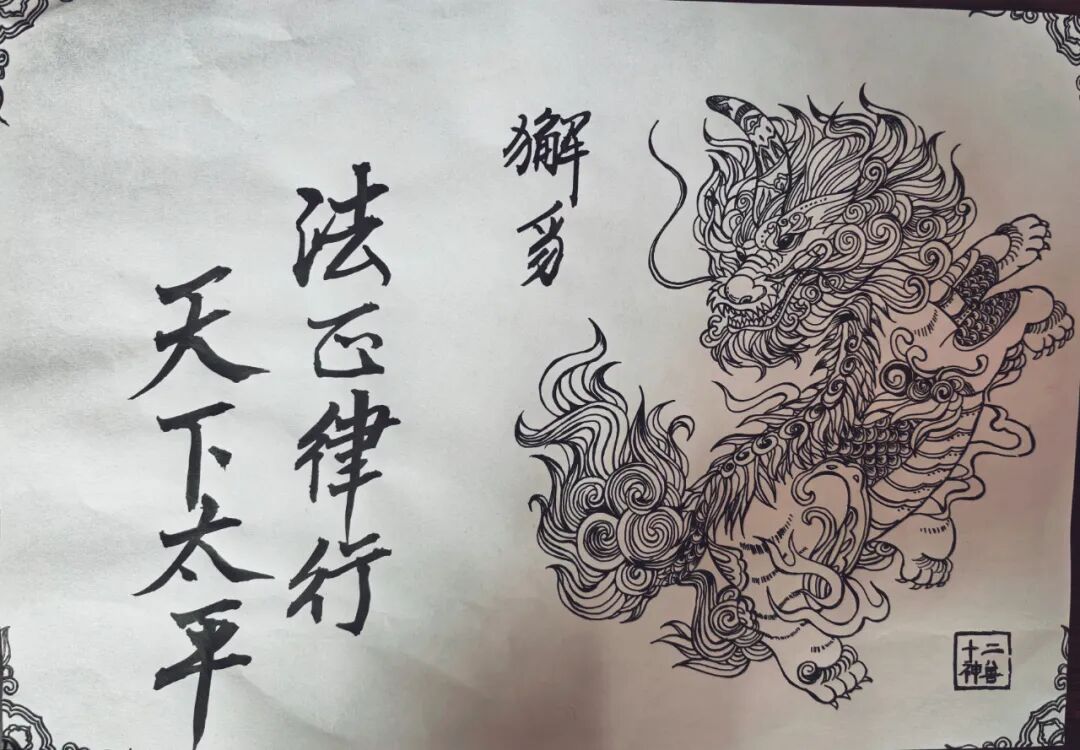 獬豸
法正律行
天下太平
十二
神兽